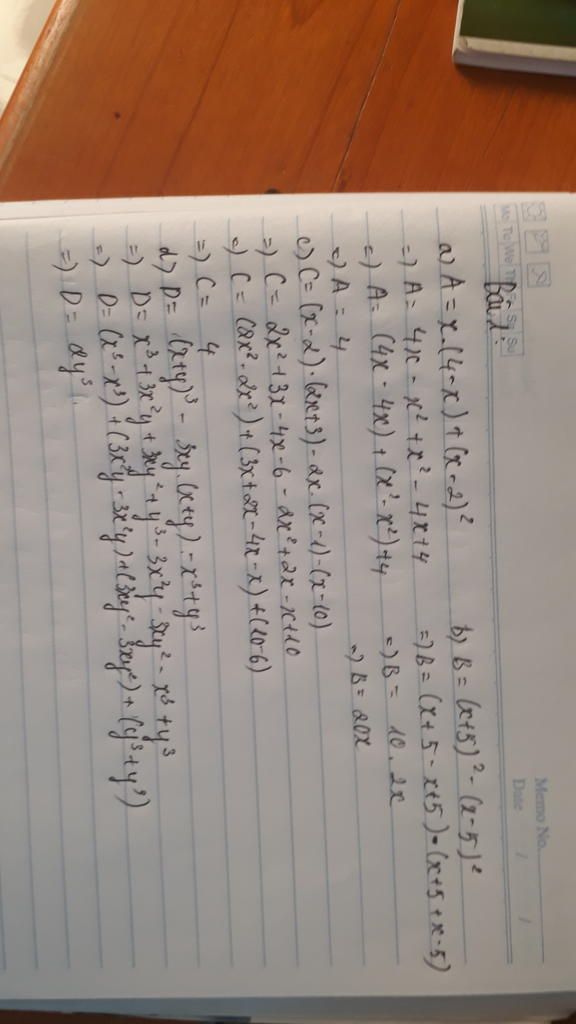 Memo No.
Date / /
Mo Tu We Th Fr Sa Su
Bài 1:
a) A = x.(4-x) + (x-2)²
=) A = 4x - x² + x² - 4x + 4
=) A = (4x - 4x) + (x² - x²) + 4
=) A = 4
b) B = (x+5)² - (x-5)²
=) B = (x+5-x+5).(x+5+x-5)
=) B = 10.2x
=) B = 20x
c) C = (x-2).(2x+3) - 2x.(x-1) - (x-10)
=) C = 2x² + 3x - 4x - 6 - 2x² + 2x - x + 10
=) C = (2x² - 2x²) + (3x + 2x - 4x - x) + (10-6)
=) C = 4
d) D = (x+y)³ - 3xy.(x+y) - x³ + y³
=) D = x³ + 3x²y + 3xy² + y³ - 3x²y - 3xy² - x³ + y³
=) D = (x³ - x³) + (3x²y - 3x²y) + (3xy² - 3xy²) + (y³ + y³)
=) D = 2y³.